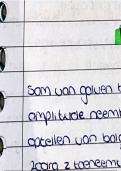 Som van golven
amplitude neem
optellen van
zodra z toeneem